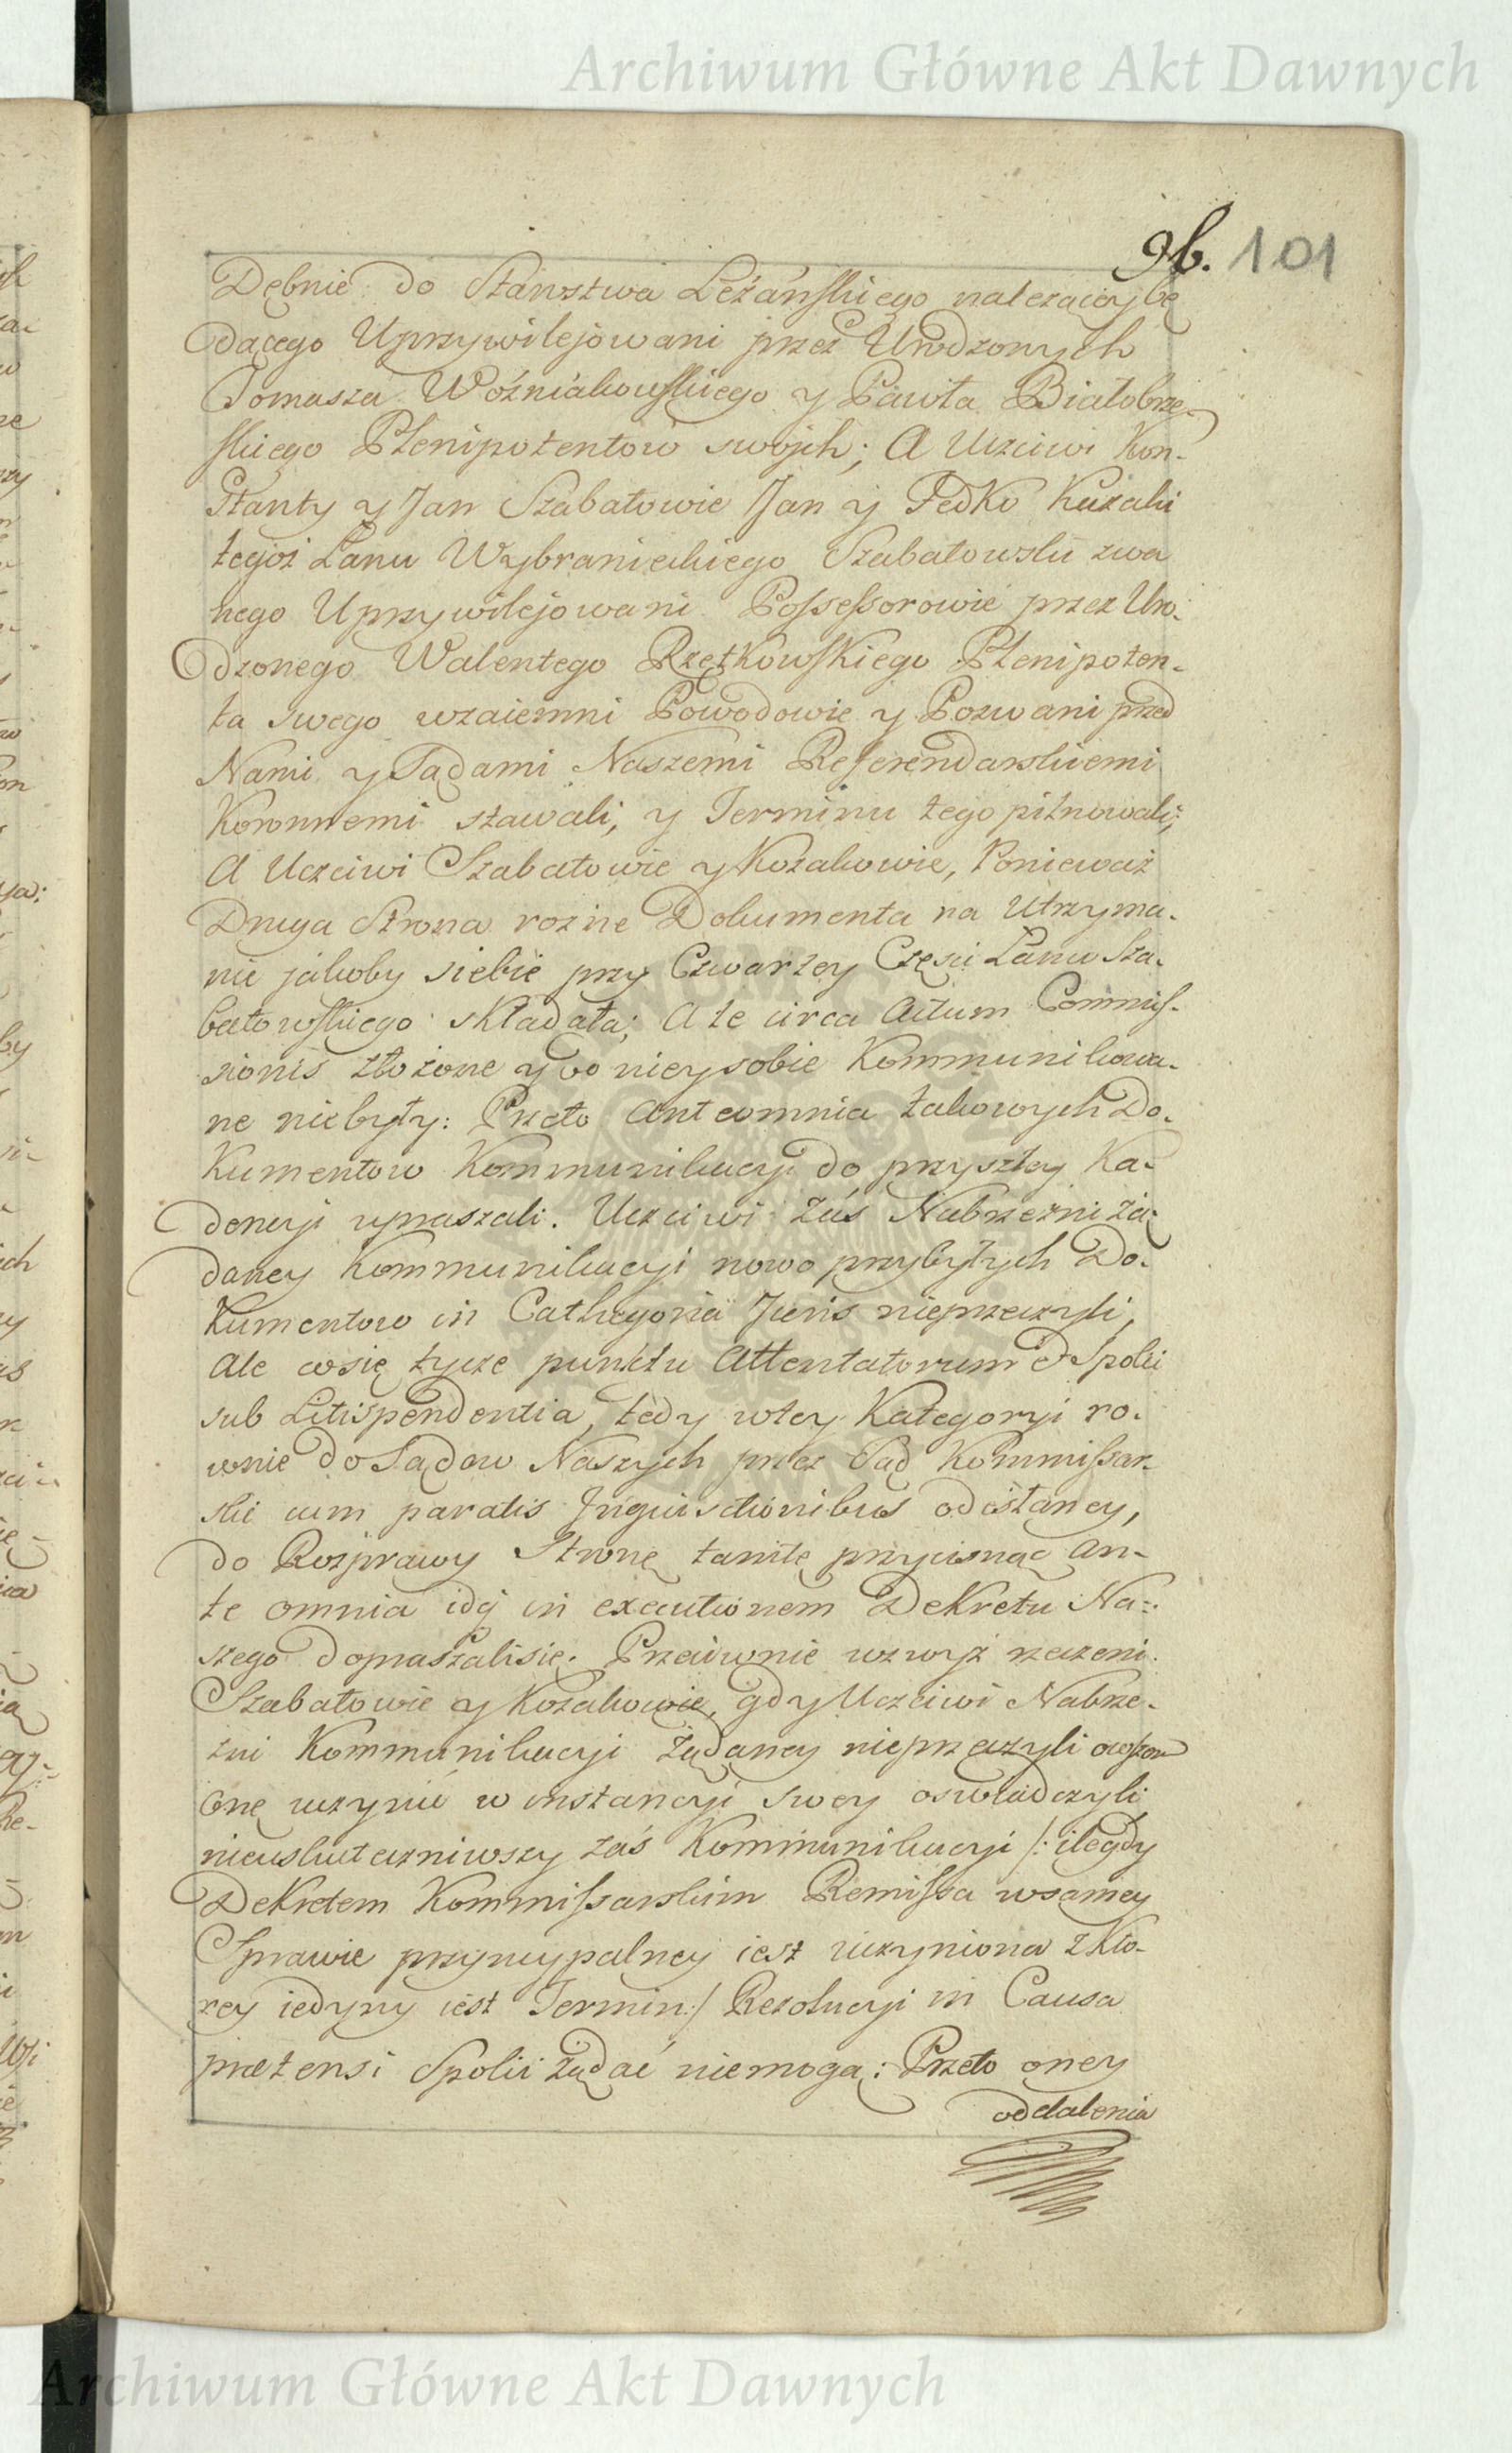 Archiwum Główne Akt Dawnych
96. 101
Dębnie do Starostwa Leżańskiego należącey bę
dącego Uprzywilejowani przez Urodzonych
Tomasza Woźniakowskiego y Pawła Białobrze-
skiego Plenipotentow swojch; A Uczciwi Kon-
stanty y Jan Szabatowie Jan y Fedko Kozaki
tegoż Łanu Wybranieckiego Szabatowski zwa
nego Uprzywilejowani Possessorowie przez Uro-
dzonego Walentego Rzętkowskiego Plenipoten-
ta swego wzaiemni Powodowie y Pozwani przed
Nami y Sądami Naszemi Referendarskiemi
Koronnemi stawali, y Terminu tego pilnowali;
A Uczciwi Szabatowie y Kozakowie, Ponieważ
Druga Strona rożne Dokumenta na Utrzyma-
nie jakoby siebie przy Czwartey Częsci Łanu Sza-
batowskiego składała; A te circa Actum Commis-
sionis złożone y do niey sobie Kommunikowa-
ne niebyły: Przeto Ante omnia takowych Do-
kumentow Kommunikacyi do przyszłey Ka-
dencyi upraszali. Uczciwi zaś Nabrzeżni żą-
daney Kommunikacyi nowo przybyłych Do-
kumentow in Cathegoria Juris nieprzeczyli,
Ale co się tycze punktu Attentatorum et Spolii
sub Litispendentia, tedy w tey Kategoryi ro-
wnie do Sądow Naszych przez Sąd Kommissar-
ski cum paratis Inquisitionibus odesłaney,
do Rozprawy Stronę tamtę przycisnąć an-
te omnia idq in executionem Dekretu Na-
szego dopraszali się. Przeciwnie wzwyż rzeczeni
Szabatowie y Kozakowie, gdy Uczciwi Nabrze-
żni Kommunikacyi żądaney nieprzeczyli owszem
onę uczynić w instancyi swey oswiadczyli
nieuskuteczniwszy zaś Kommunikacyi /: ile gdy
Dekretem Kommissarskim Remissa w samey
Sprawie pryncypalney iest uczyniona z Kto-
rey iedyny iest Termin :/ Rezolucyi in Causa
prætensi Spolii żądać niemogą: Przeto oney
oddalenia
Archiwum Główne Akt Dawnych